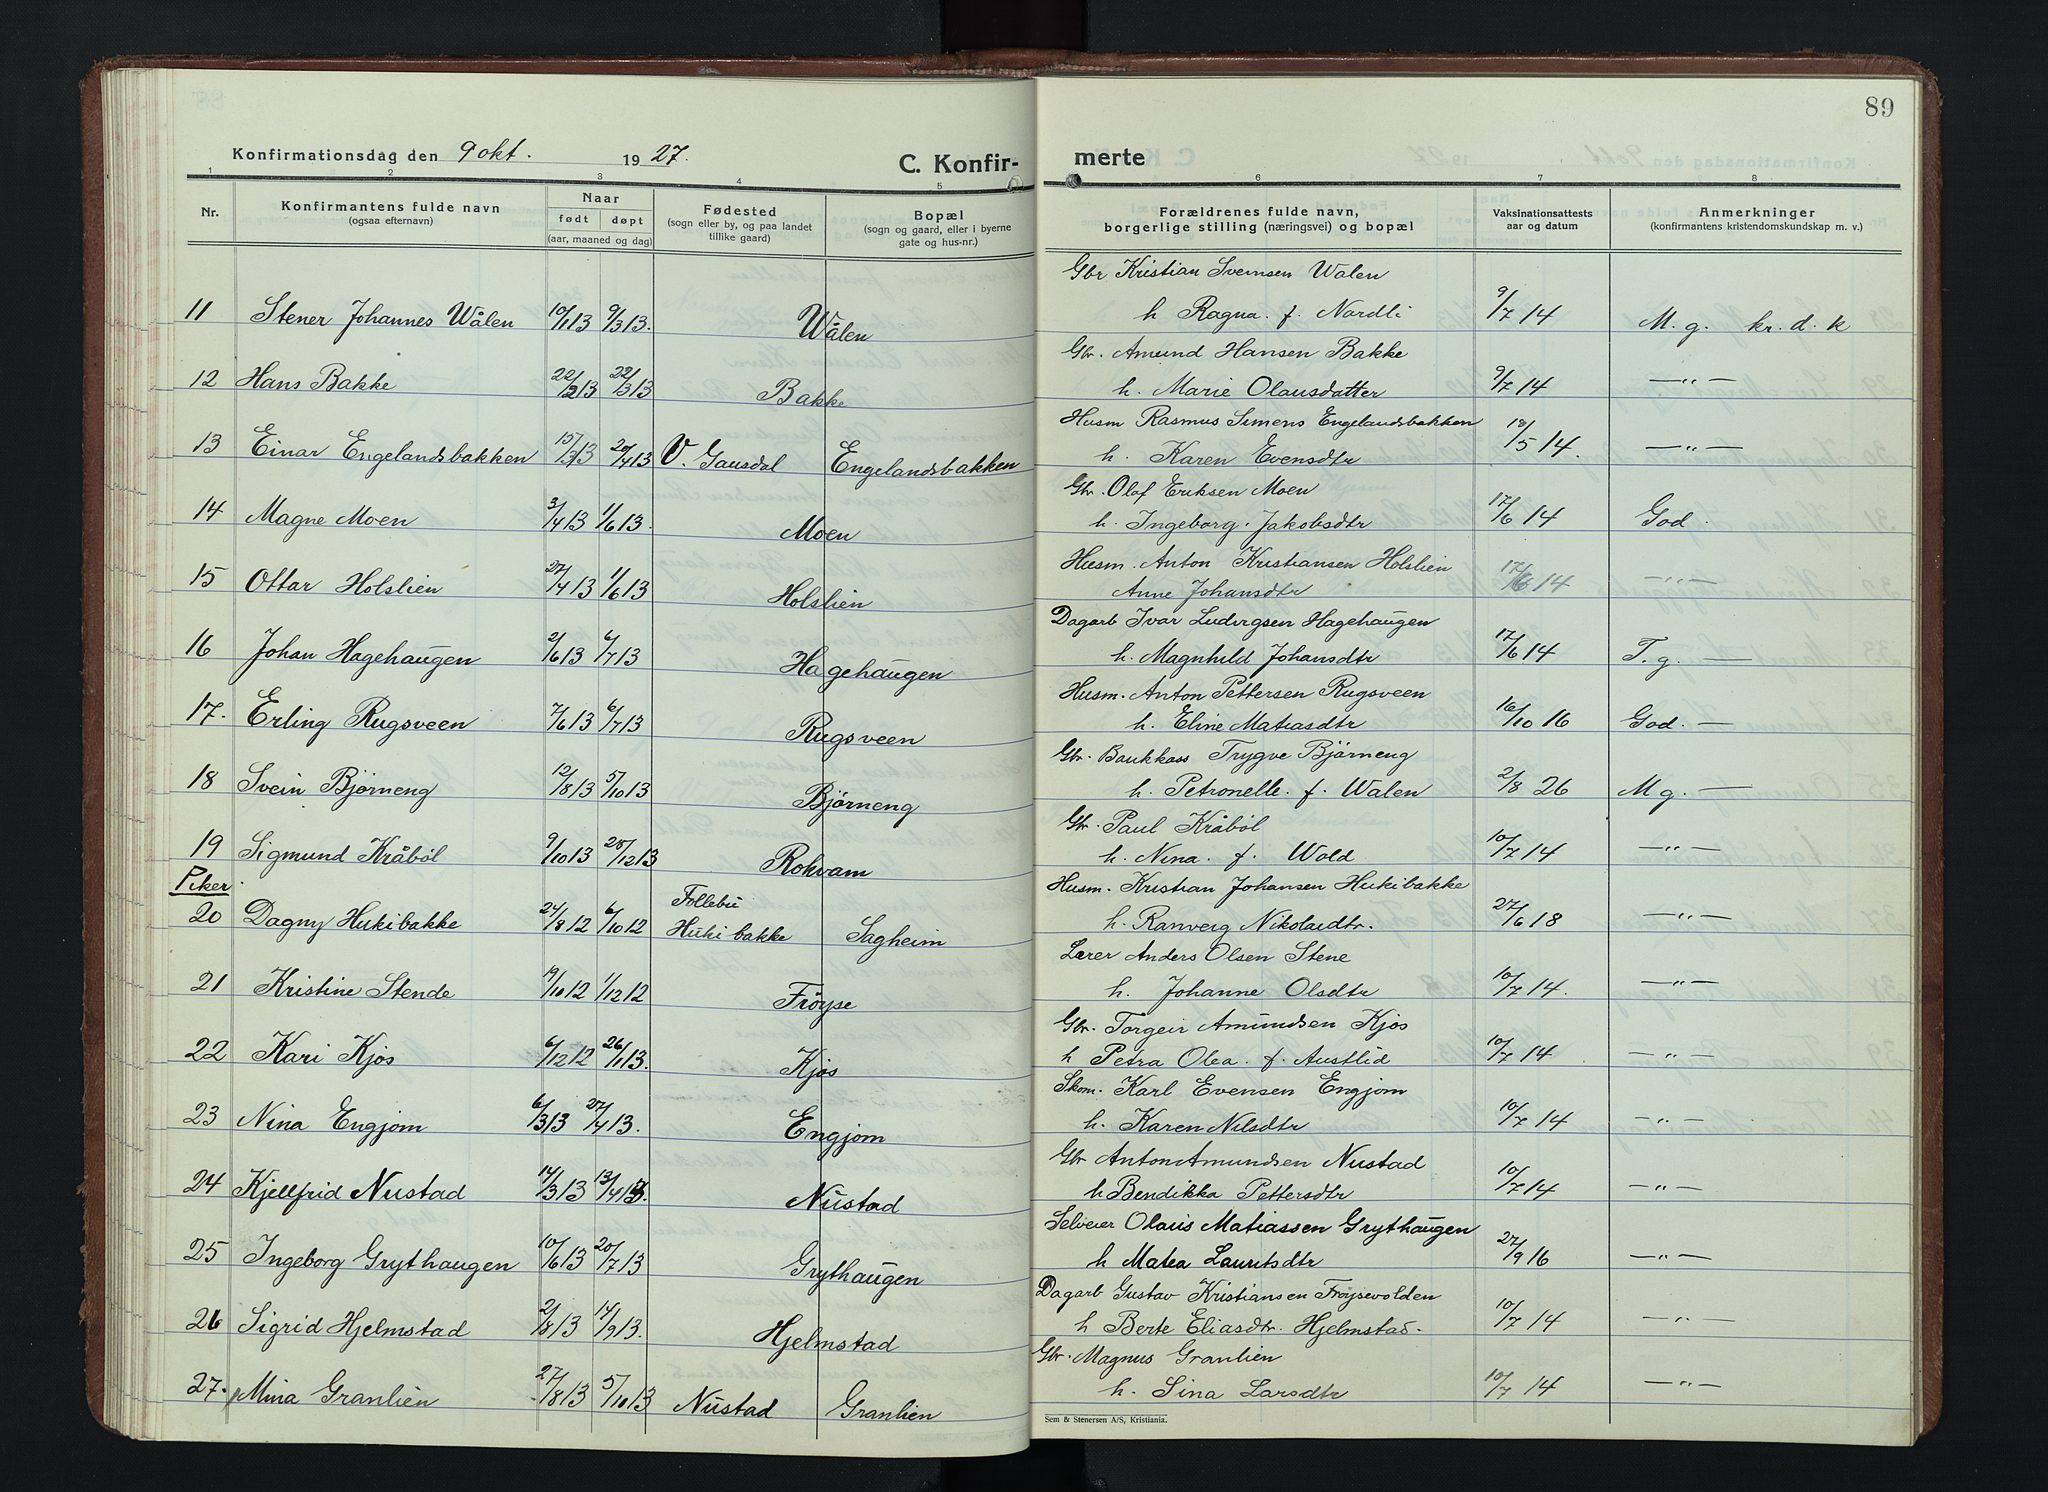 89
Konfirmationsdag den 9 okt. 1927. C. Konfir- merte
1 2 3 4 5 6 7 8
Nr. Konfirmantens fulde navn (ogsaa efternavn) Naar født døpt (aar, maaned og dag) Fødested (sogn eller by, og paa landet tillike gaard) Bopæl (sogn og gaard, eller i byerne gate og hus-nr.) Forældrenes fulde navn, borgerlige stilling (næringsvei) og bopæl Vaksinationsattests aar og datum Anmerkninger (konfirmantens kristendomskundskap m. v.)
Gbr Kristian Svensen Wålen
11 Stener Johannes Wålen 10/1 13 9/3 13. Wålen h Ragna. f. Nordli 9/7 14 M. g. kr. d. k
Gbr. Amund Hansen Bakke
12 Hans Bakke 22/2 13 22/3 13 Bakke h. Marie Olausdatter 9/7 14 —"—
Husm Rasmus Simens Engelandsbakken
13 Einar Engelandsbakken 15/3 13 20/4 13 V. Gausdal Engelandsbakken h. Karen Evensdtr 18/5 14. —"—
Gbr. Olaf Eriksen Moen
14 Magne Moen 3/4 13 1/6 13. Moen h. Ingeborg Jakobsdtr 17/6 14 God.
Husm. Anton Kristiansen Holslien
15 Ottar Holslien 27/4 13 1/6 13 Holslien Anne Johansdtr 17/6 14 —"—
Dagarb Ivar Ludvigsen Hagehaugen
16 Johan Hagehaugen 2/6 13 6/7 13 Hagehaugen h. Magnhild Johansdtr 17/6 14 T. g. —
Husm. Anton Pettersen Rugsveen
17. Erling Rugsveen 7/6 13 6/7 13 Rugsveen h. Eline Matiasdtr 16/10 16 God. —
Gbr. Bankkass Trygve Bjørneng
18 Svein Bjørneng 12/8 13 5/10 13 Bjørneng h. Petronelle. f. Walen 2/8 26 M g. —
Gbr. Paul Kråbøl
19 Sigmund Kråbøl 9/10 13 20/12 13 Rokvam h. Nina. f. Wold 10/7 14 —"—
Piker.
Follebu Husm. Kristian Johansen Hukibakke
20 Dagny Hukibakke 24/8 12 6/10 12 Hukibakke Sagheim h. Ranveig Nikolaidtr. 27/6 18 —"—
Lærer Anders Olsen Stene
21 Kristine Stende 19/10 12 1/12 12 Frøyse h. Johanne Olsdtr 10/7 14. —"—
Gbr. Torgeir Amundsen Kjos
22 Kari Kjos 6/12 12 26/1 13. Kjos h Petra Olea. f. Austlid 10/7 14 —"—
Skom. Karl Evensen Engjom
23 Nina Engjom 6/3 13 27/4 13. Engjom h. Karen Nilsdtr 10/7 14 —"—
Gbr Anton Amundsen Nustad
24 Kjellfrid Nustad 14/3 13 13/4 13. Nustad h Bendikka Pettersdtr 10/7 14 —"—
Selveier Olaus Matiassen Grythaugen
25 Ingeborg Grythaugen 10/6 13 20/7 13 Grythaugen h Matea Lauritsdtr 27/9 16 —"—
Dagarb Gustav Kristiansen Frøysevolden
26 Sigrid Hjelmstad 2/8 13 14/9 13. Hjelmstad h Berte Eliasdtr. Hjelmstad. 10/7 14 —"—
Gbr. Magnus Granlien
27. Mina Granlien 27/8 13 5/10 13 Nustad Granlien h. Sina Larsdtr 10/7 14 —"—
Sem & Stenersen A/S, Kristiania.